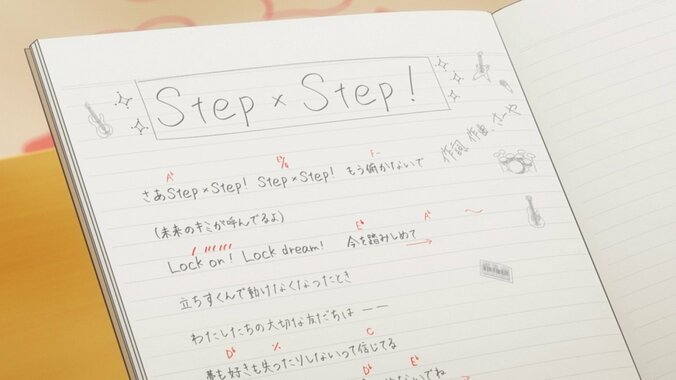 Step × Step!
作詞、作曲、さーや
A♭ E♭/G F-
さあStep×Step! Step×Step! もう俯かないで
(未来のキミが呼んでるよ)
E♭ A♭
Lock on! Lock dream! 今を踏みしめて
立ちすくんで動けなくなったとき
わたしたちの大切な友だちは ——
D♭ C
夢も好きも失ったりしないって信じてる
D♭ E♭
ないでね